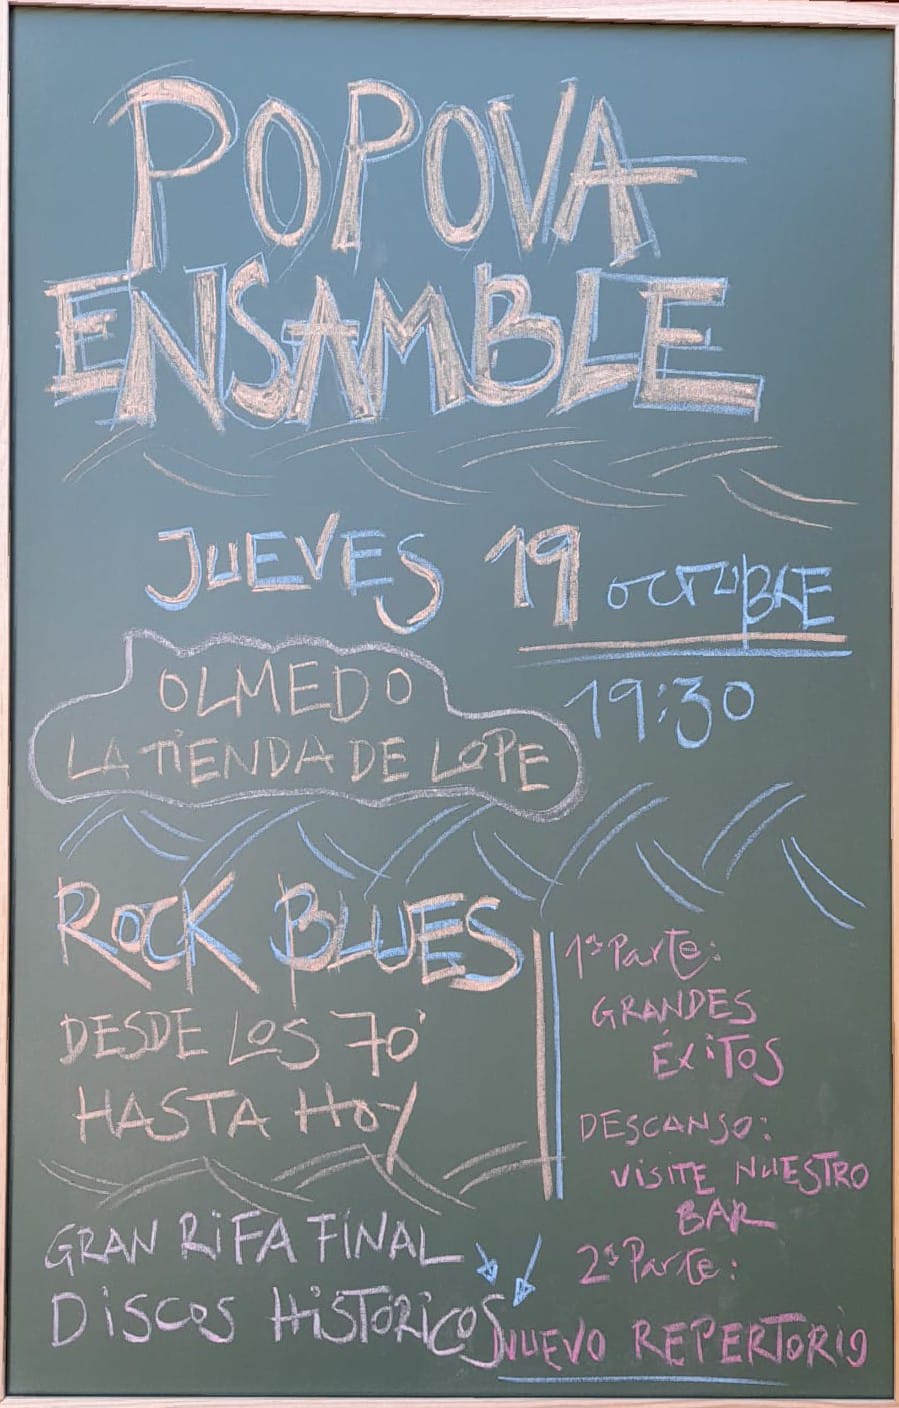 POPOVA
ENSAMBLE
JUEVES 19 OCTUBRE
19:30
OLMEDO
LA TIENDA DE LOPE
ROCK BLUES
DESDE LOS 70'
HASTA HOY
GRAN RIFA FINAL
DISCOS HISTÓRICOS
1ª Parte:
GRANDES
ÉXITOS
DESCANSO:
VISITE NUESTRO
BAR
2ª Parte:
NUEVO REPERTORIO